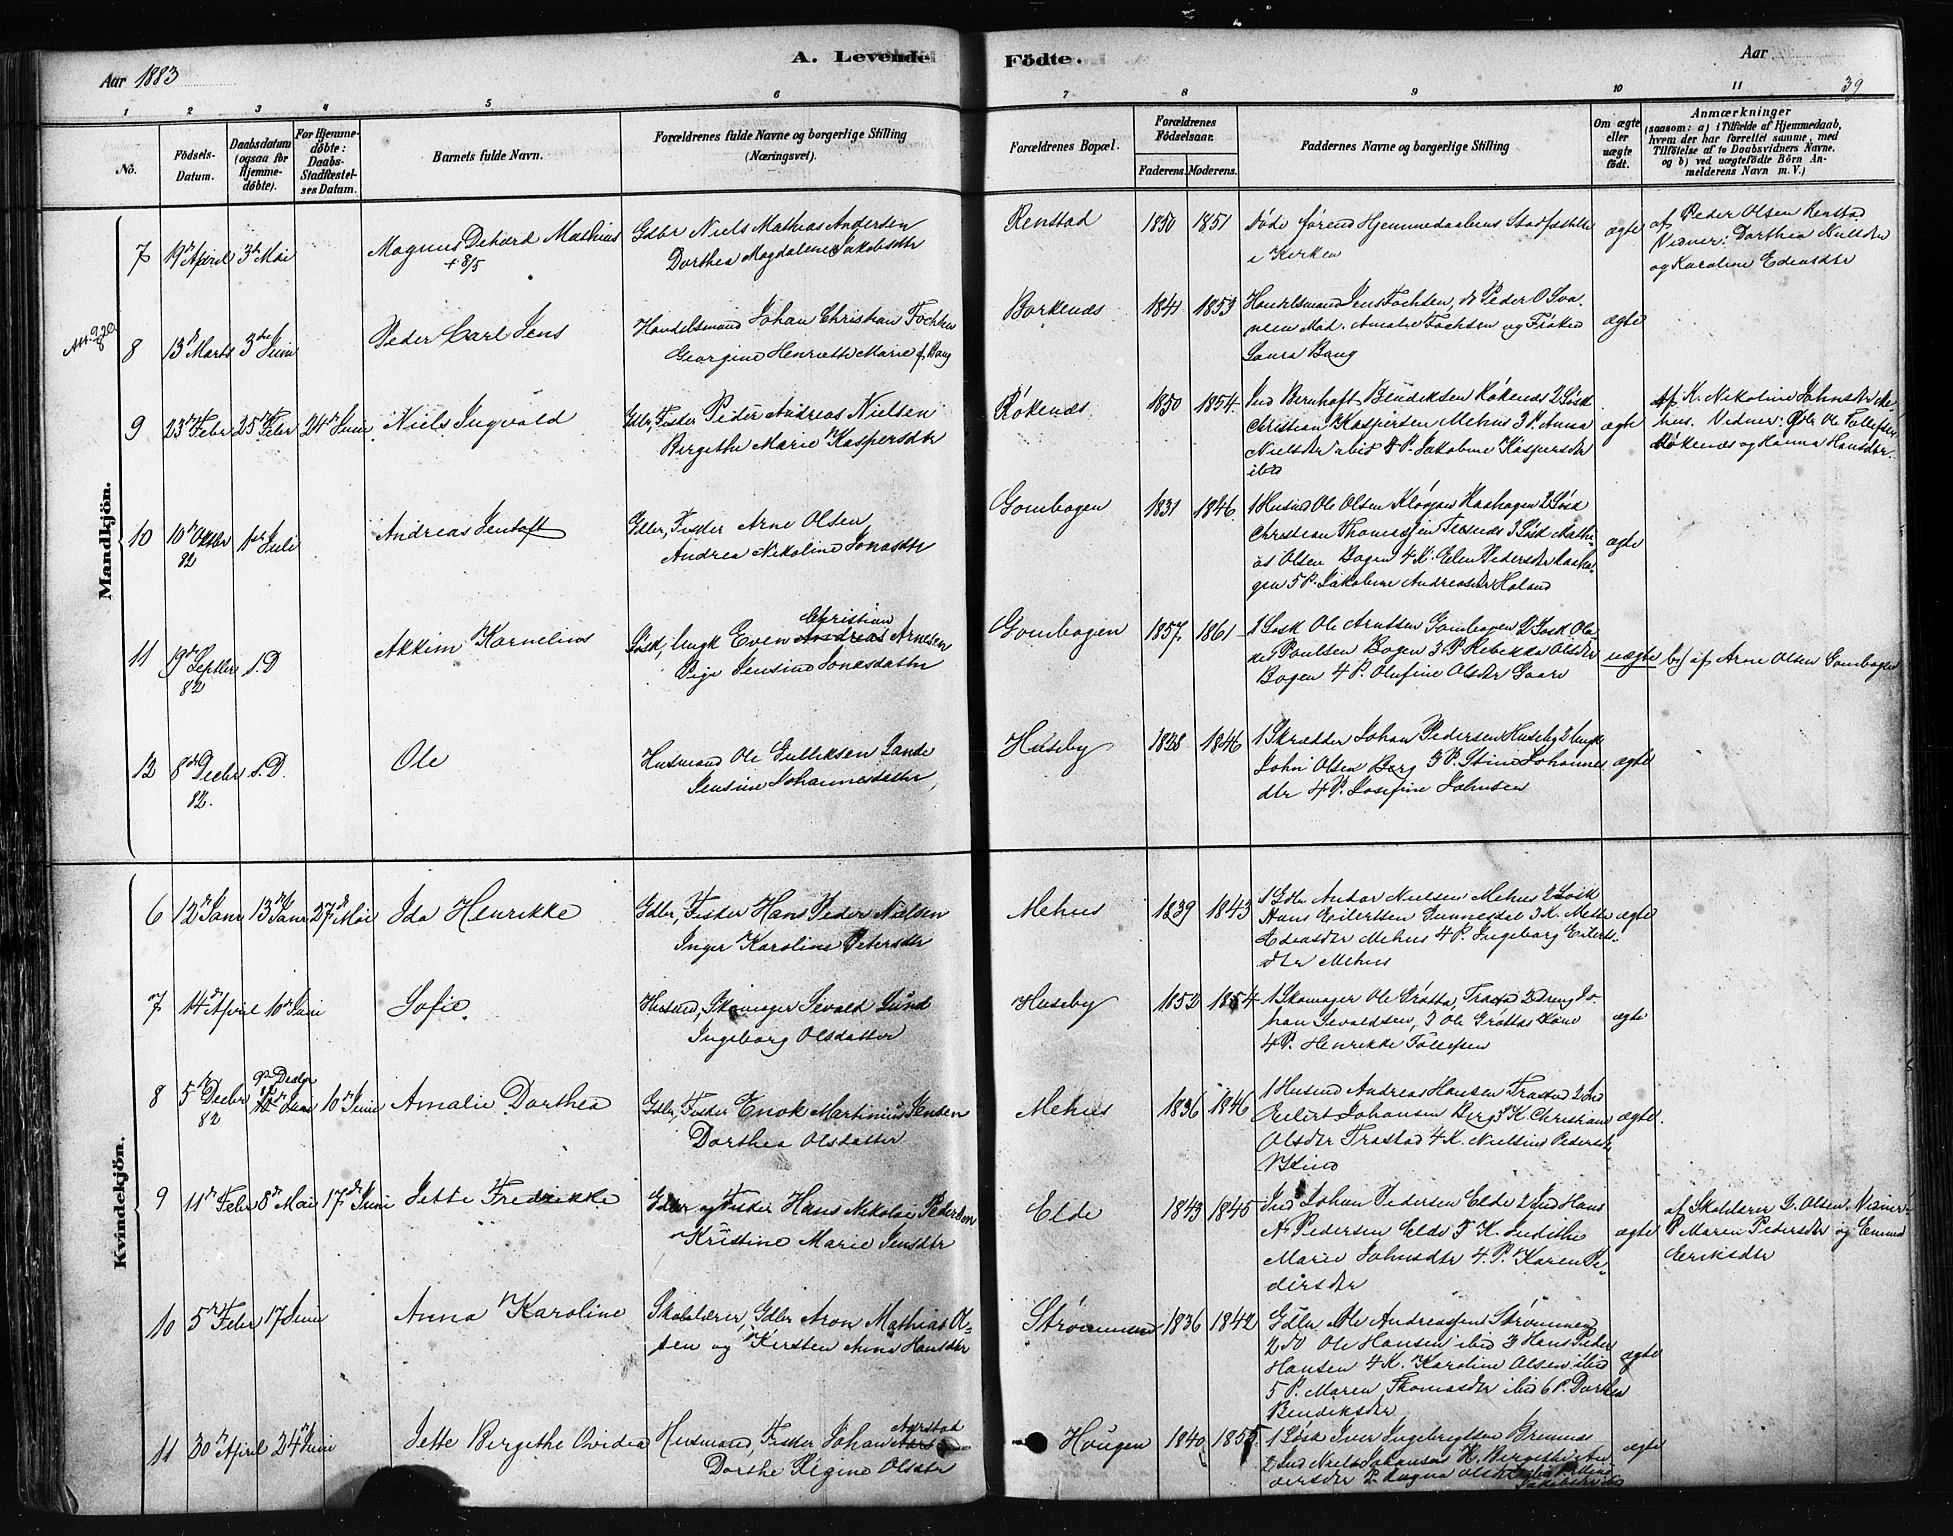 Aar 1883
A. Levende Födte.
Aar
39
1 2 3 4 5 6 7 8 9 10 11
No.
Födsels-Datum.
Daabsdatum (ogsaa for Hjemme-döbte).
For Hjemme-döbte: Daabs-Stadfæstel-ses Datum.
Barnets fulde Navn.
Forældrenes fulde Navne og borgerlige Stilling (Næringsvei).
Forældrenes Bopæl.
Forældrenes Födselsaar.
Faderens. Moderens.
Faddernes Navne og borgerlige Stilling
Om ægte eller uægte födt.
Anmærkninger
(saasom: a) i Tilfælde af Hjemmedaab, hvem der har forrettet samme, med Tilföielse af to Daabsvidners Navne. og b) ved uægtefödte Börn An-melderens Navn m. V.)
Mandkjön.
7 19de April 3die Mai
Magnus Dehard Mathius
+ 8/5
Gdbr Niels Mathias Andersen
Dorthea Magdalena Jakobsdtr
Renstad 1850 1851
Døde førend Hjemmedaabens Stadfæstelse
i Kirken
ægte
af Peder Olsen Renstad
Vidner: Dorthea Nielsdtr
og Karoline Edeasdtr
8 13de Marts 3die Juni
Peder Carl Jens
Handelsmand Johan Christian Fochsen
Georgine Henriette Marie f. Bang
Borkenæs 1841 1853
Handelsmand Jens Fochsen, do Peder O Sva-
neen Mad. Amalie Fochsen og Frøken
Laura Bang
ægte
9 23de Febr 25de Febr 24de Juni
Niels Ingvald
Gdbr, Fisker Peder Andreas Nielsen
Bergethe Marie Kaspersdtr
Røkenæs 1850 1854
Ind Bernhoft Bendiksen Røkenæs 2 Løsk
Christian Kaspersen Mehus 3 P. Anna
Nielsdtr ibid 4 P. Jakobine Kaspersdtr
ibid
ægte
Af K. Nikoline Johnsdtr Me-
hus. Vidner: Gdb Ole Tollefsen
Røkenæs og Hanna Hansdtr.
10 10de Oktbr 82 1ste Juli
Andreas Jentoft
Gdbr, Fisker Arne Olsen
Andrea Nikoline Jonasdtr
Gombogen 1831 1846
1 Husmd Ole Olsen Kløvjan Kaahagen 2 Løsk
Christian Thomassen 3 Løsk Mathi-
as Olsen Bogen 4 K. Elen Pedersdtr Kaaha-
gen 5 P. Jakobine Andreasdtr Holand
ægte
11 19de Septbr 82 s. D
Akkim Kornelius
Løsk, Ungk Even Andreas Christian Arnesen
Pige Jensine Jonesdatter
Gombogen 1857 1861
1 Løsk Ole Arntsen Gombogen 2 Løsk Ole
Paulsen Bogen 3 P. Rebekka Olsdtr
Bogen 4 P. Olufine Olsdtr Gaare
uægte
b) af Arne Olsen Gombogen
12 8de Decbr 82. s. D.
Ole
Husmand Ole Gulliksen Sande
Jensine Johannesdatter
Huseby 1828 1846
1 Skrædder Johan Pedersen Huseby 2 Ungk
John Olsen Berg 3 P. Stine Johannes
dtr 4 P. Josefine Johnsen
ægte
Kvindekjön.
6 12de Janr 13de Janr 27de Mai
Ida Henrikke
Gdbr, Fisker Hans Peder Nielsen
Inger Karoline Petersdtr
Mehus 1839 1843
1 Gdbr Andor Nielsen Mehus 2 Løsk
Hans Eilertsen Gunnesdal 3 K. Mette
Edeasdtr Mehus 4 P. Ingeborg Eilerts-
dtr Mehus
ægte
7 14de April 10de Juni
Sofie
Husmd, Skomager Sevald Lund
Ingeborg Olsdatter
Huseby 1852 1854
1 Skomager Ole Grøtta, Trasta 2 dreng Jo-
han Sevaldsen, 3 Ole Grøttas Kone
4 P. Henrikke Tollefsen
ægte
8 5te Decbr 82 9de Decbr 82 10de Juni
Amalie Dorthea
Gdbr, Fisker Enok Martinius Jensen
Dorthea Olsdatter
Mehus 1836 1846
1 Husmd Andreas Hansen Trastad 2 Ind
Eilert Johansen Berg 3 K. Christiane
Olsdtr Trastad 4 K. Nielsine Pedersdtr
ægte
9 11de Febr 8de Mai 17de Juni
Jette Fredrikke
Gdbr og Fisker Hans Nikolai Pedersen
Kristine Marie Jensdtr
Elde 1843 1845
Ind Johan Pedersen Elde 2 Ind Hans
A. Pedersen Elde 3 K. Judithe
Marie Johnsdtr 4. P. Karen Pe-
dersdtr
ægte
af Skolelærer D. Olsen, Vidner:
P. Maren Pedersdtr og Emma
Eriksdtr
10 5te Febr 17 Juni
Anna Karoline
Skolelærer, Gdbr Aron Mathias Ol-
sen og Kirsten Anna Hansdtr
Strømmen 1836 1842
Gdbr Ole Andreassen Strømmen
2 do Ole Hansen ibid 3 Hans Peder
Hansen 4 K. Karoline Olsen ibid
5 P. Maren Thomasdtr ibid 6 P. Dorthea
Bendiksdtr
ægte
11 30de April 24de Juni
Jette Bergethe Ovidea
Husmand, Fisker Johan Aarstad
Dorthe Regine Olsdtr
Hougen 1840 1855
1 Løsk Iver Ingebrigtsen Bremnes
2 Ind Niels Johansen K. Bergethe An-
dersdtr P. Olsdtr
ægte